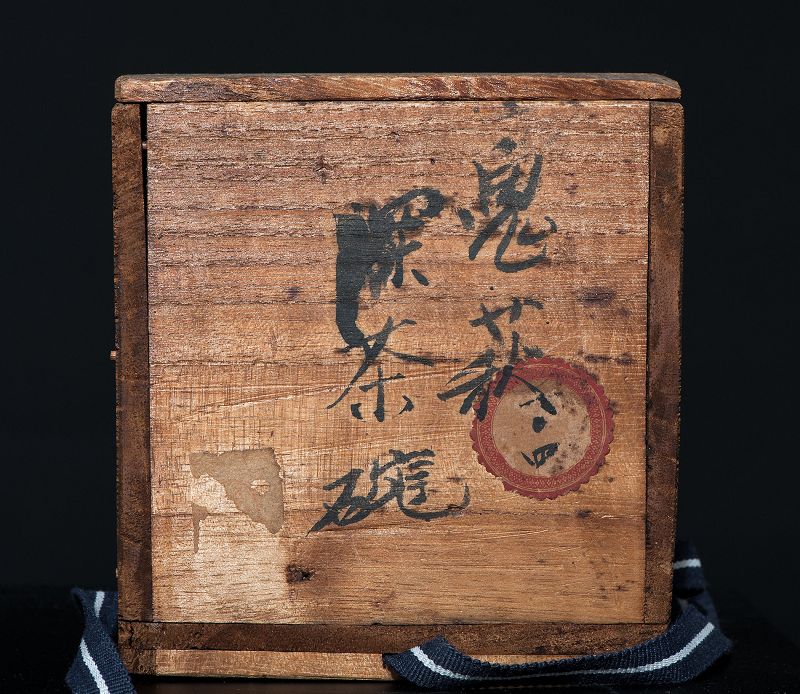 鬼萩
深茶碗
八・四